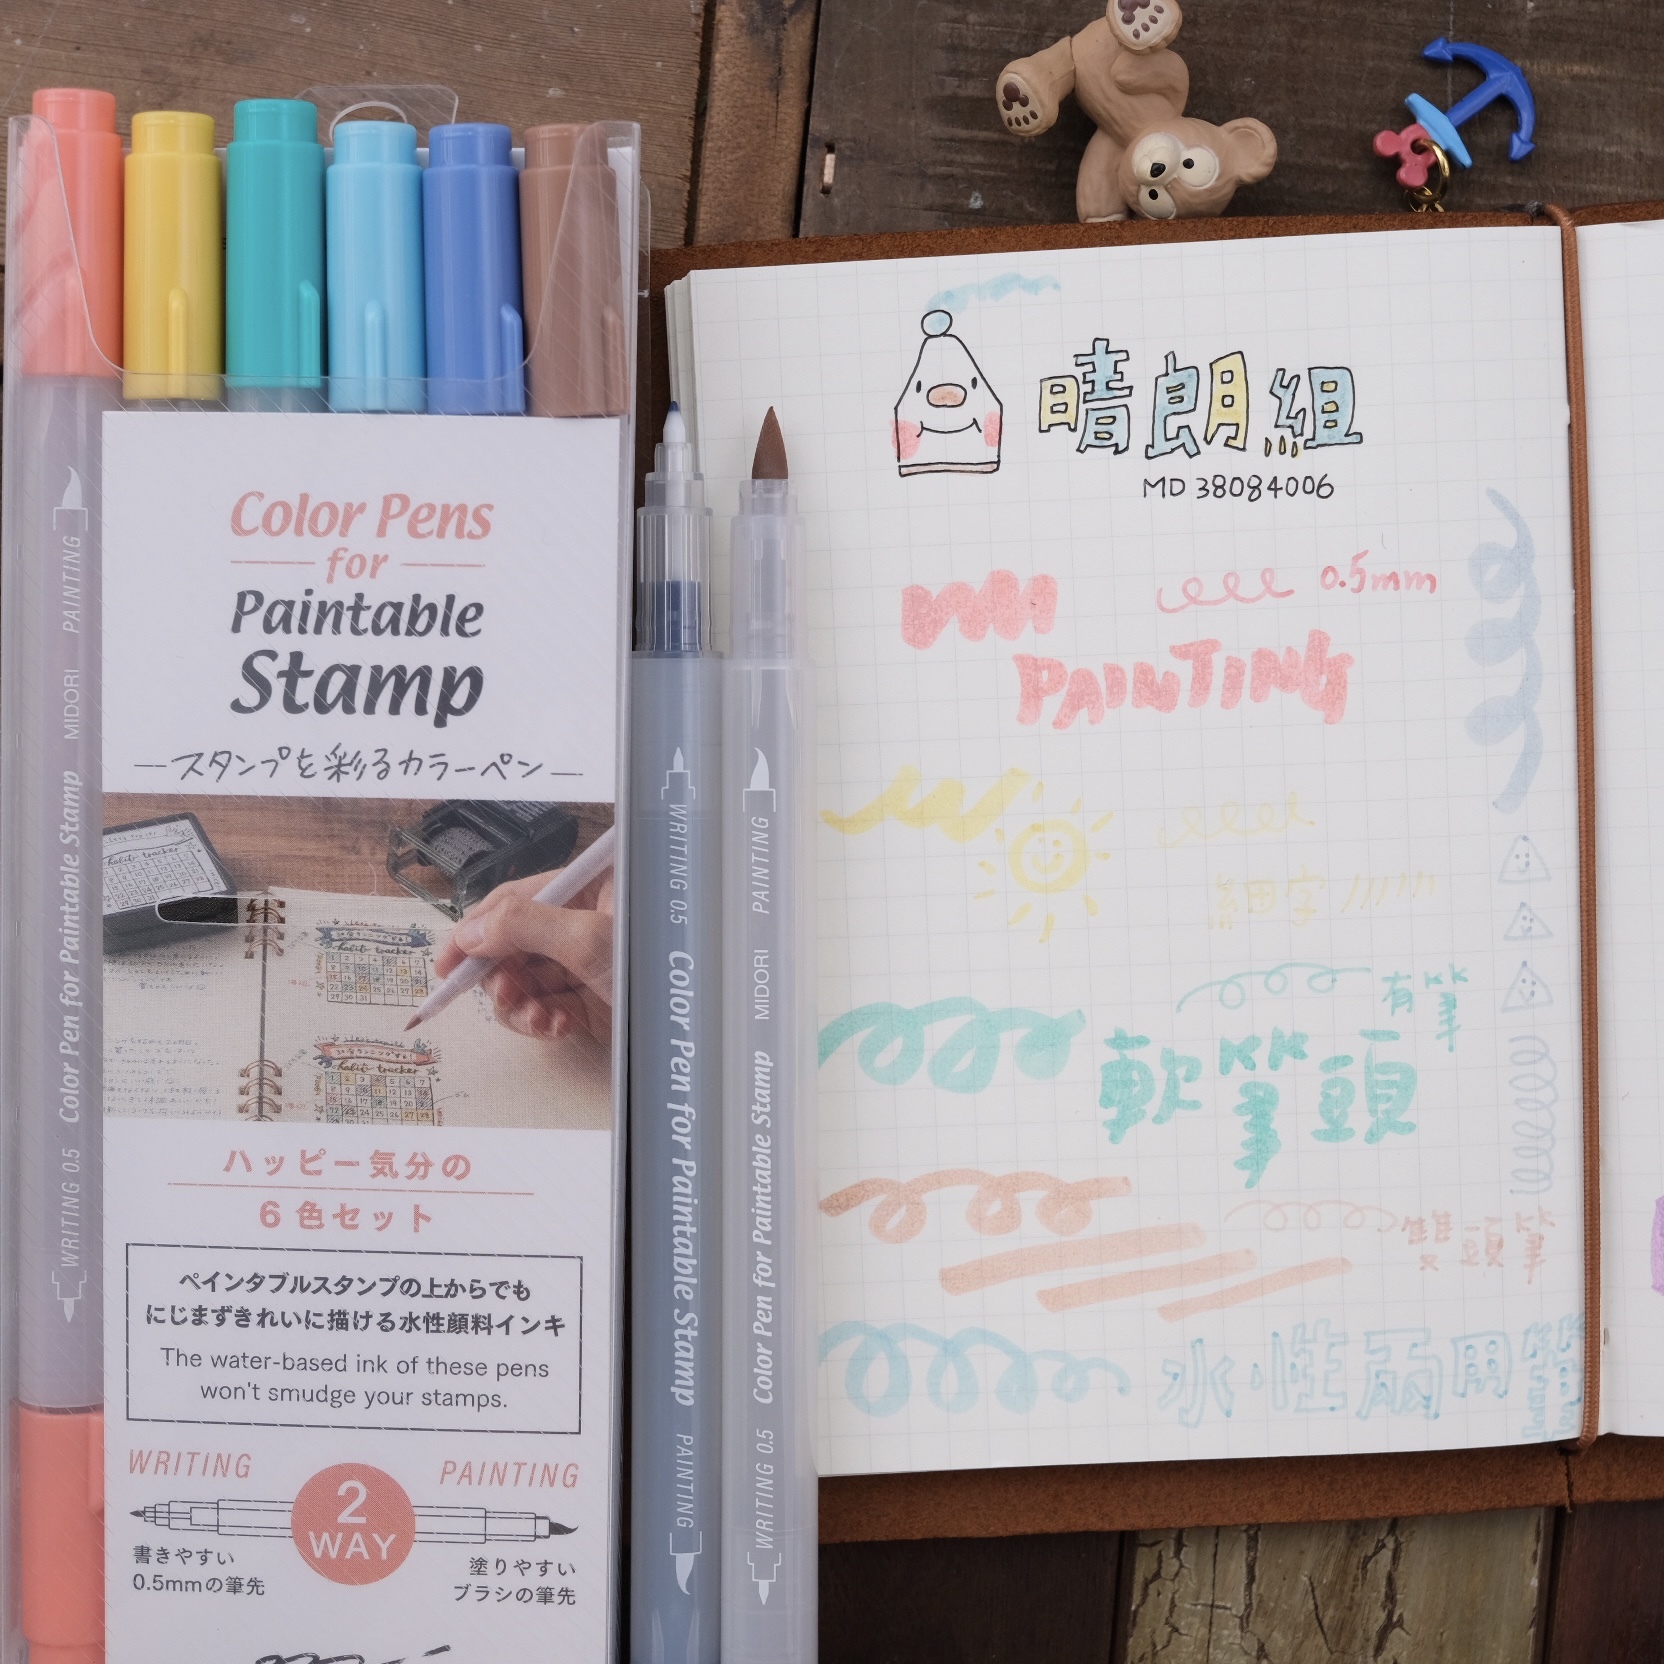 Color Pens
for
Paintable
Stamp
スタンプを彩るカラーペン
habit tracker
habit tracker
habit tracker
ハッピー気分の
6色セット
ペインタブルスタンプの上からでも
にじまずきれいに描ける水性顔料インキ
The water-based ink of these pens
won't smudge your stamps.
WRITING
PAINTING
2
WAY
書きやすい
0.5mmの筆先
塗りやすい
ブラシの筆先
WRITING 0.5 Color Pen for Paintable Stamp MIDORI PAINTING
WRITING 0.5 Color Pen for Paintable Stamp PAINTING
WRITING 0.5 Color Pen for Paintable Stamp MIDORI PAINTING
晴朗組
MD 38084006
0.5mm
PAINTING
細字
有筆
軟筆頭
雙頭筆
水性兩用筆